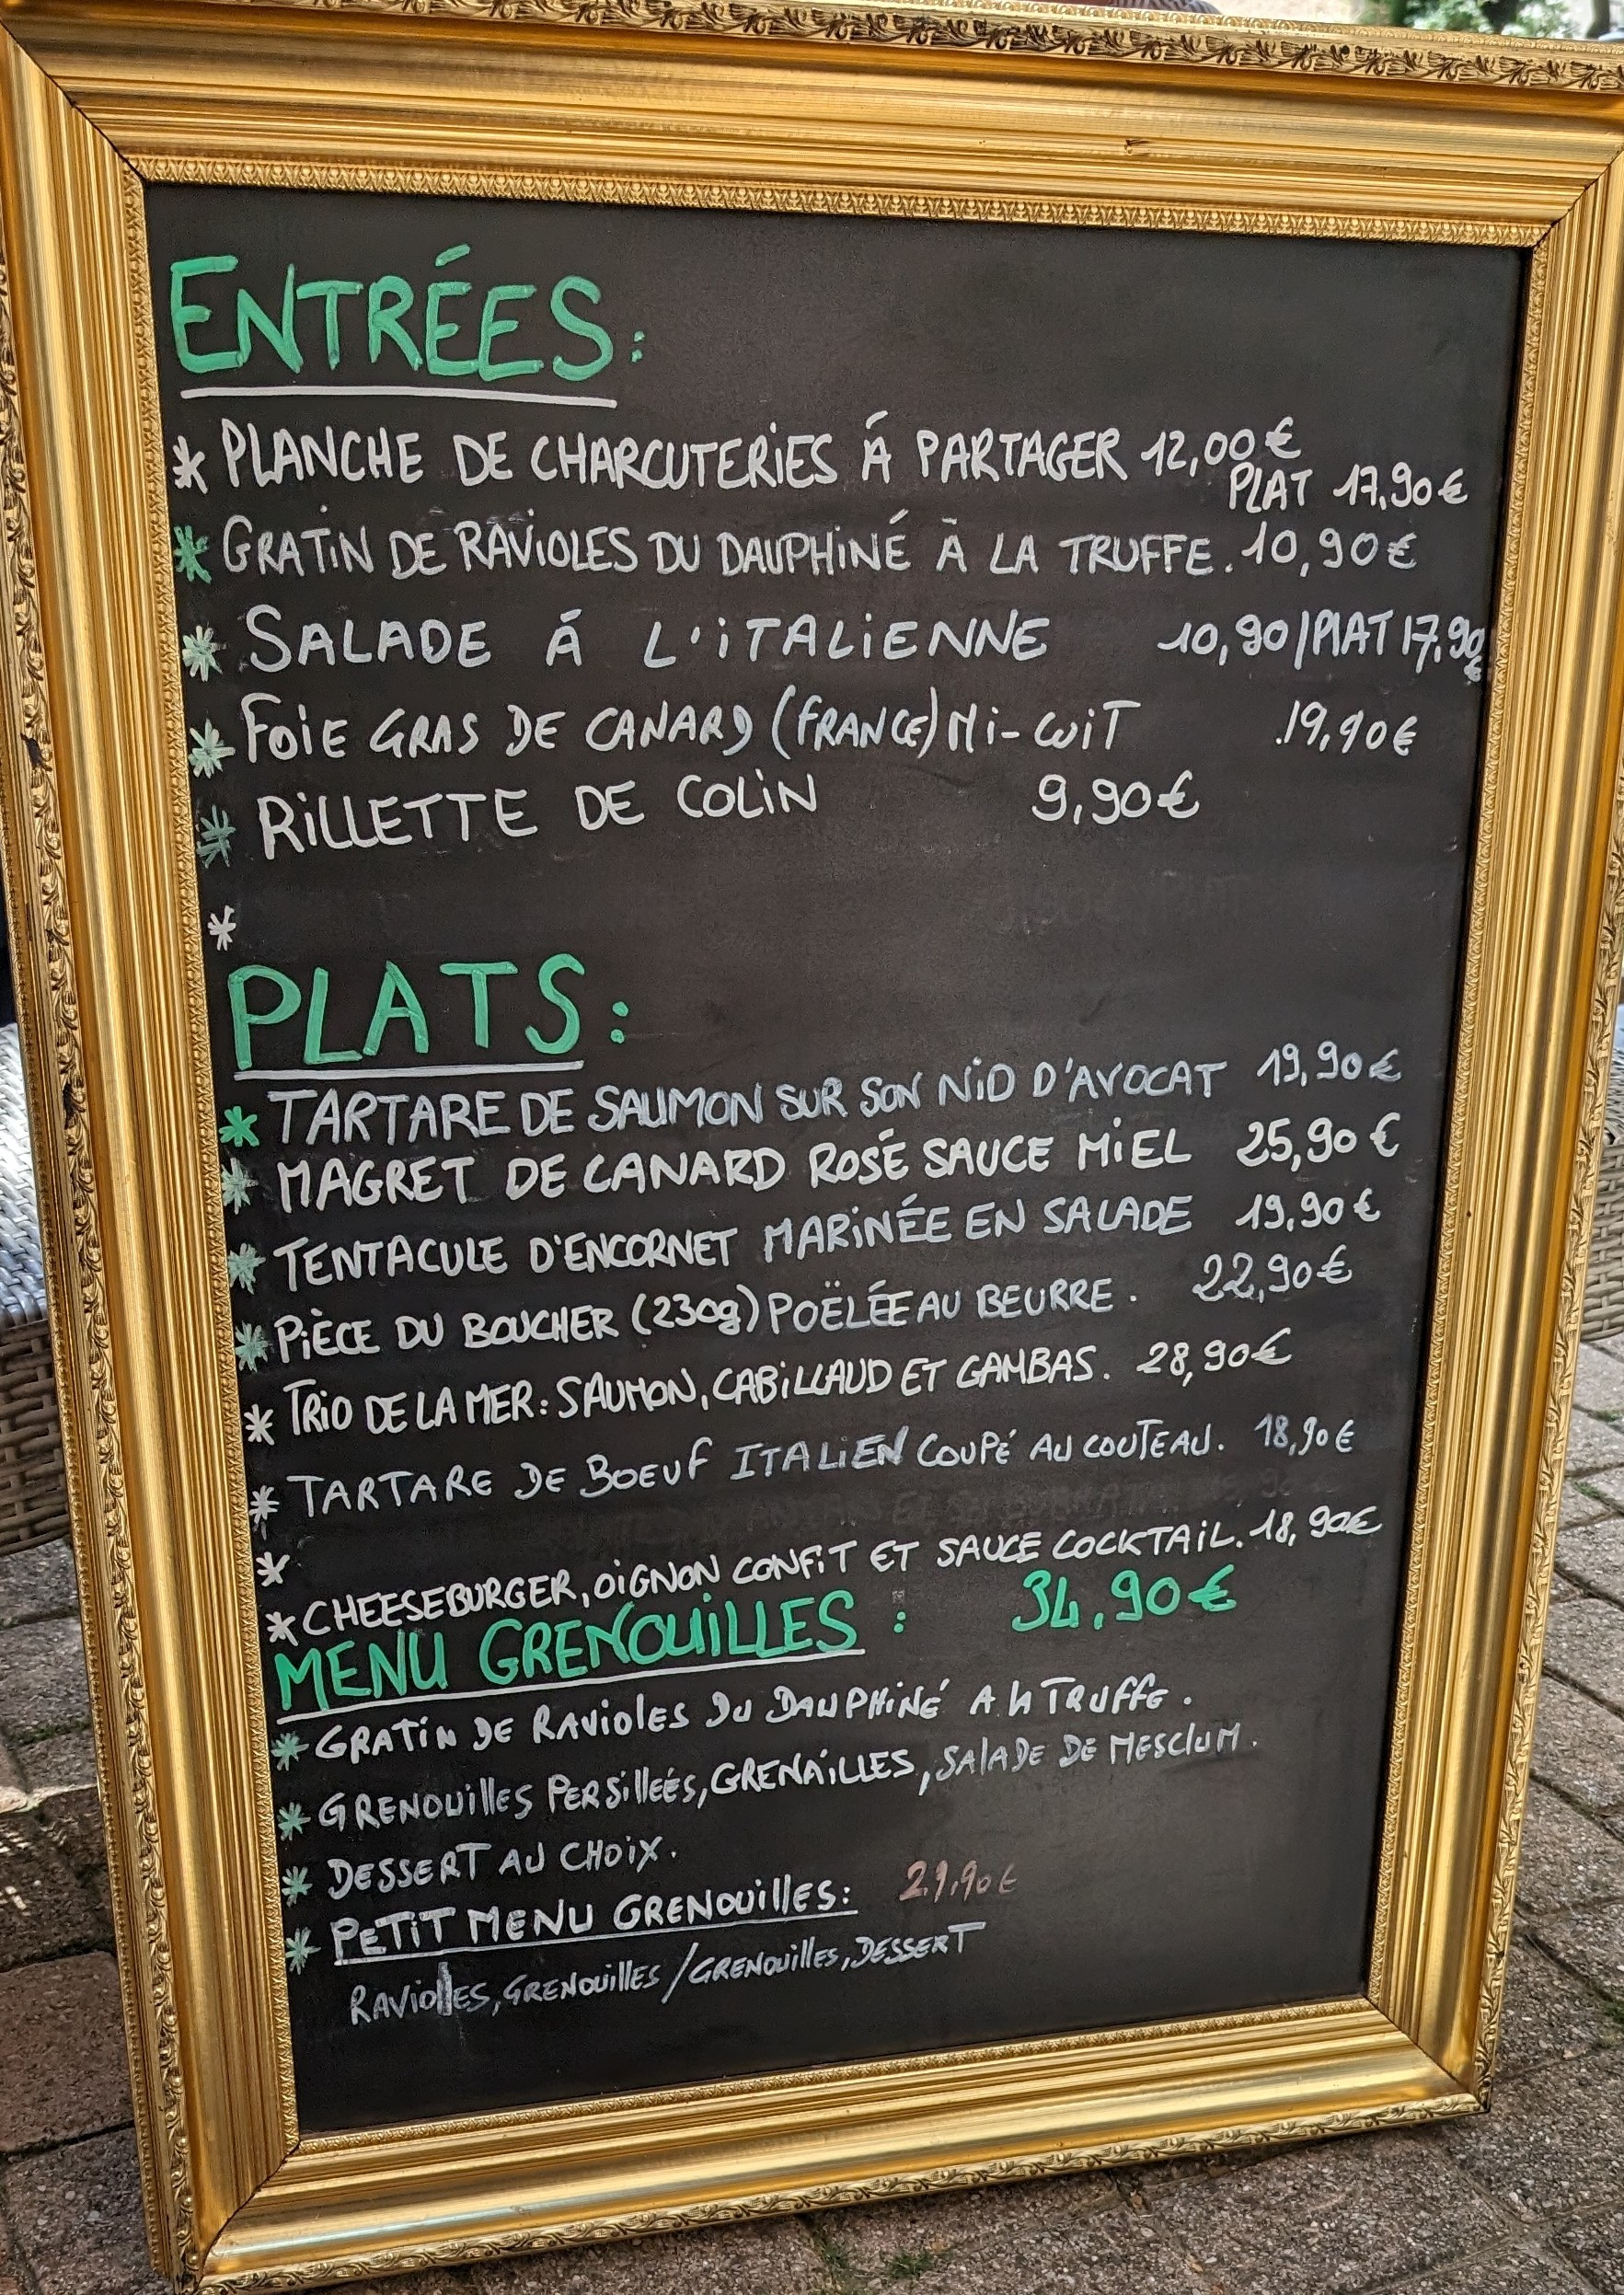 ENTRÉES:
* PLANCHE DE CHARCUTERIES Á PARTAGER 12,00€
PLAT 17,90€
* GRATIN DE RAVIOLES DU DAUPHINÉ Ā LA TRUFFE. 10,90€
* SALADE Á L'ITALIENNE 10,90/PLAT 17,90€
* FOIE GRAS DE CANARD (FRANCE) MI-CUIT 19,90€
* RILLETTE DE COLIN 9,90€
*
PLATS:
* TARTARE DE SAUMON SUR SON NID D'AVOCAT 19,90€
* MAGRET DE CANARD ROSÉ SAUCE MIEL 25,90€
* TENTACULE D'ENCORNET MARINÉE EN SALADE 19,90€
* PIÈCE DU BOUCHER (230g) POËLÉE AU BEURRE. 22,90€
* TRIO DE LA MER: SAUMON, CABILLAUD ET GAMBAS. 28,90€
* TARTARE DE BOEUF ITALIEN COUPÉ AU COUTEAU. 18,90€
*
* CHEESEBURGER, OIGNON CONFIT ET SAUCE COCKTAIL. 18,90€
MENU GRENOUILLES: 34,90€
* GRATIN DE RAVIOLES DU DAUPHINÉ A LA TRUFFE.
* GRENOUILLES PERSILLEÉS, GRENAILLES, SALADE DE MESCLUM.
* DESSERT AU CHOIX.
* PETIT MENU GRENOUILLES: 29,90€
RAVIOLES, GRENOUILLES/GRENOUILLES, DESSERT